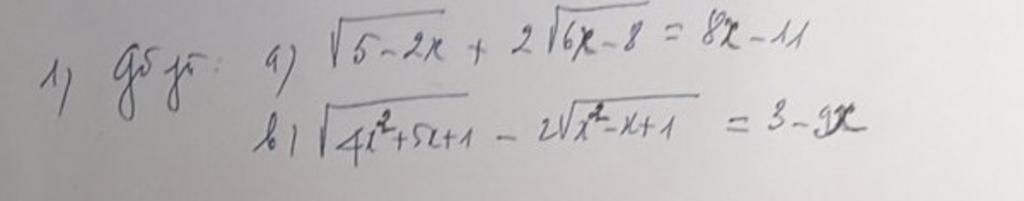 1) a) √(5-2x) + 2√(6x-8) = 8x-11
b) √(4x²+5x+1) - 2√(x²-x+1) = 3-9x